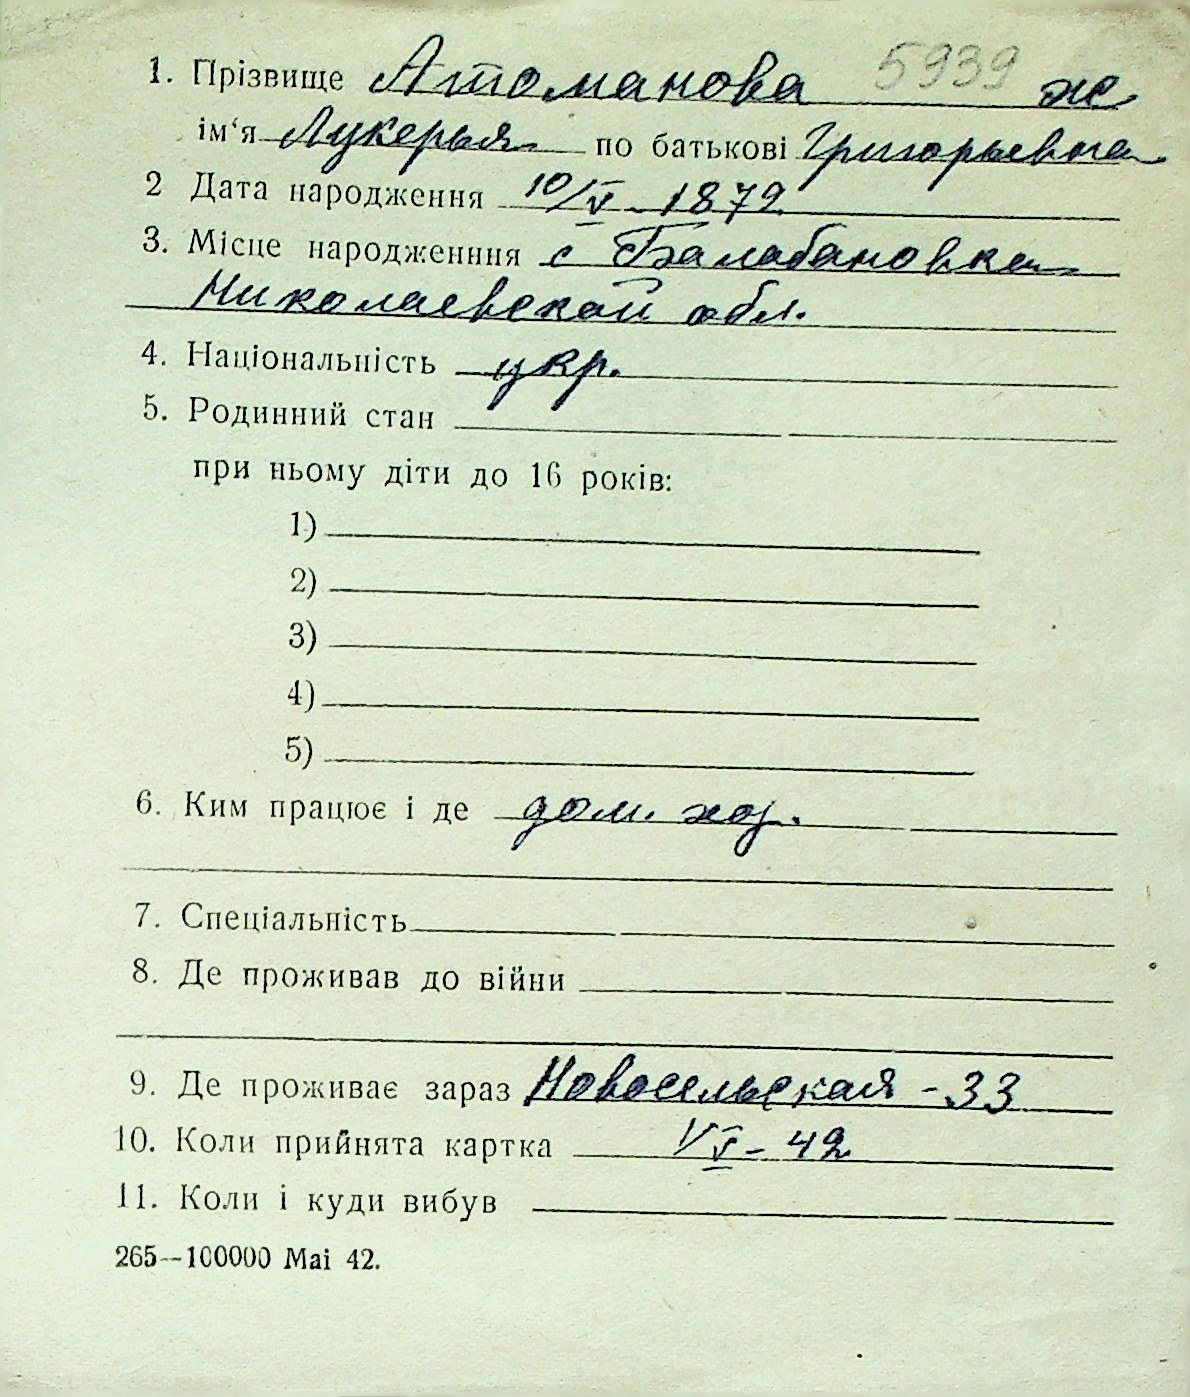 1. Прізвище Атоманова 5939 ж
ім‘я Лукерья по батькові Григорьевна
2 Дата народження 10/V - 1879
3. Місце народженння с Балабановка
Николаевской обл.
4. Національність укр.
5. Родинний стан
при ньому діти до 16 років:
1)
2)
3)
4)
5)
6. Ким працює і де дом. хоз.
7. Спеціальність
8. Де проживав до війни
9. Де проживає зараз Новосельская - 33
10. Коли прийнята картка V - 42
11. Коли і куди вибув
265—100000 Маі 42.